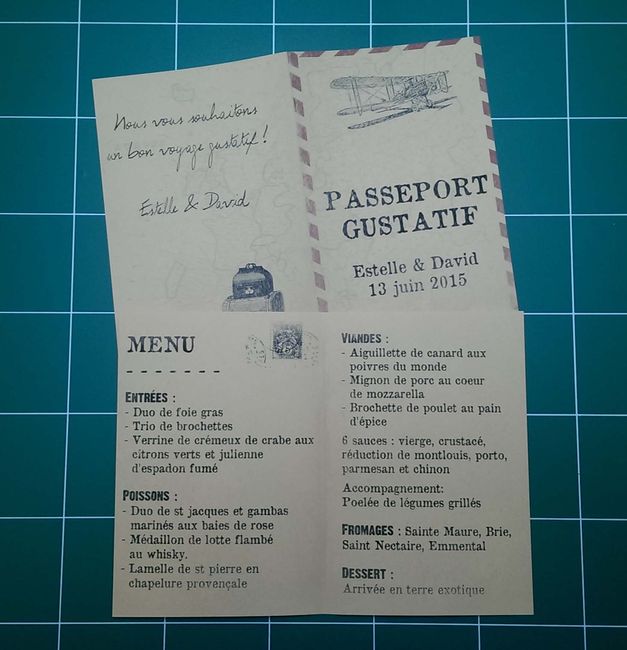 Nous vous souhaitons
un bon voyage gustatif !
Estelle & David
PASSEPORT
GUSTATIF
Estelle & David
13 juin 2015
MENU
- - - - - - -
ENTRÉES :
- Duo de foie gras
- Trio de brochettes
- Verrine de crémeux de crabe aux
citrons verts et julienne
d'espadon fumé
POISSONS :
- Duo de st jacques et gambas
marinés aux baies de rose
- Médaillon de lotte flambé
au whisky.
- Lamelle de st pierre en
chapelure provençale
VIANDES :
- Aiguillette de canard aux
poivres du monde
- Mignon de porc au coeur
de mozzarella
- Brochette de poulet au pain
d'épice
6 sauces : vierge, crustacé,
réduction de montlouis, porto,
parmesan et chinon
Accompagnement:
Poelée de légumes grillés
FROMAGES : Sainte Maure, Brie,
Saint Nectaire, Emmental
DESSERT :
Arrivée en terre exotique